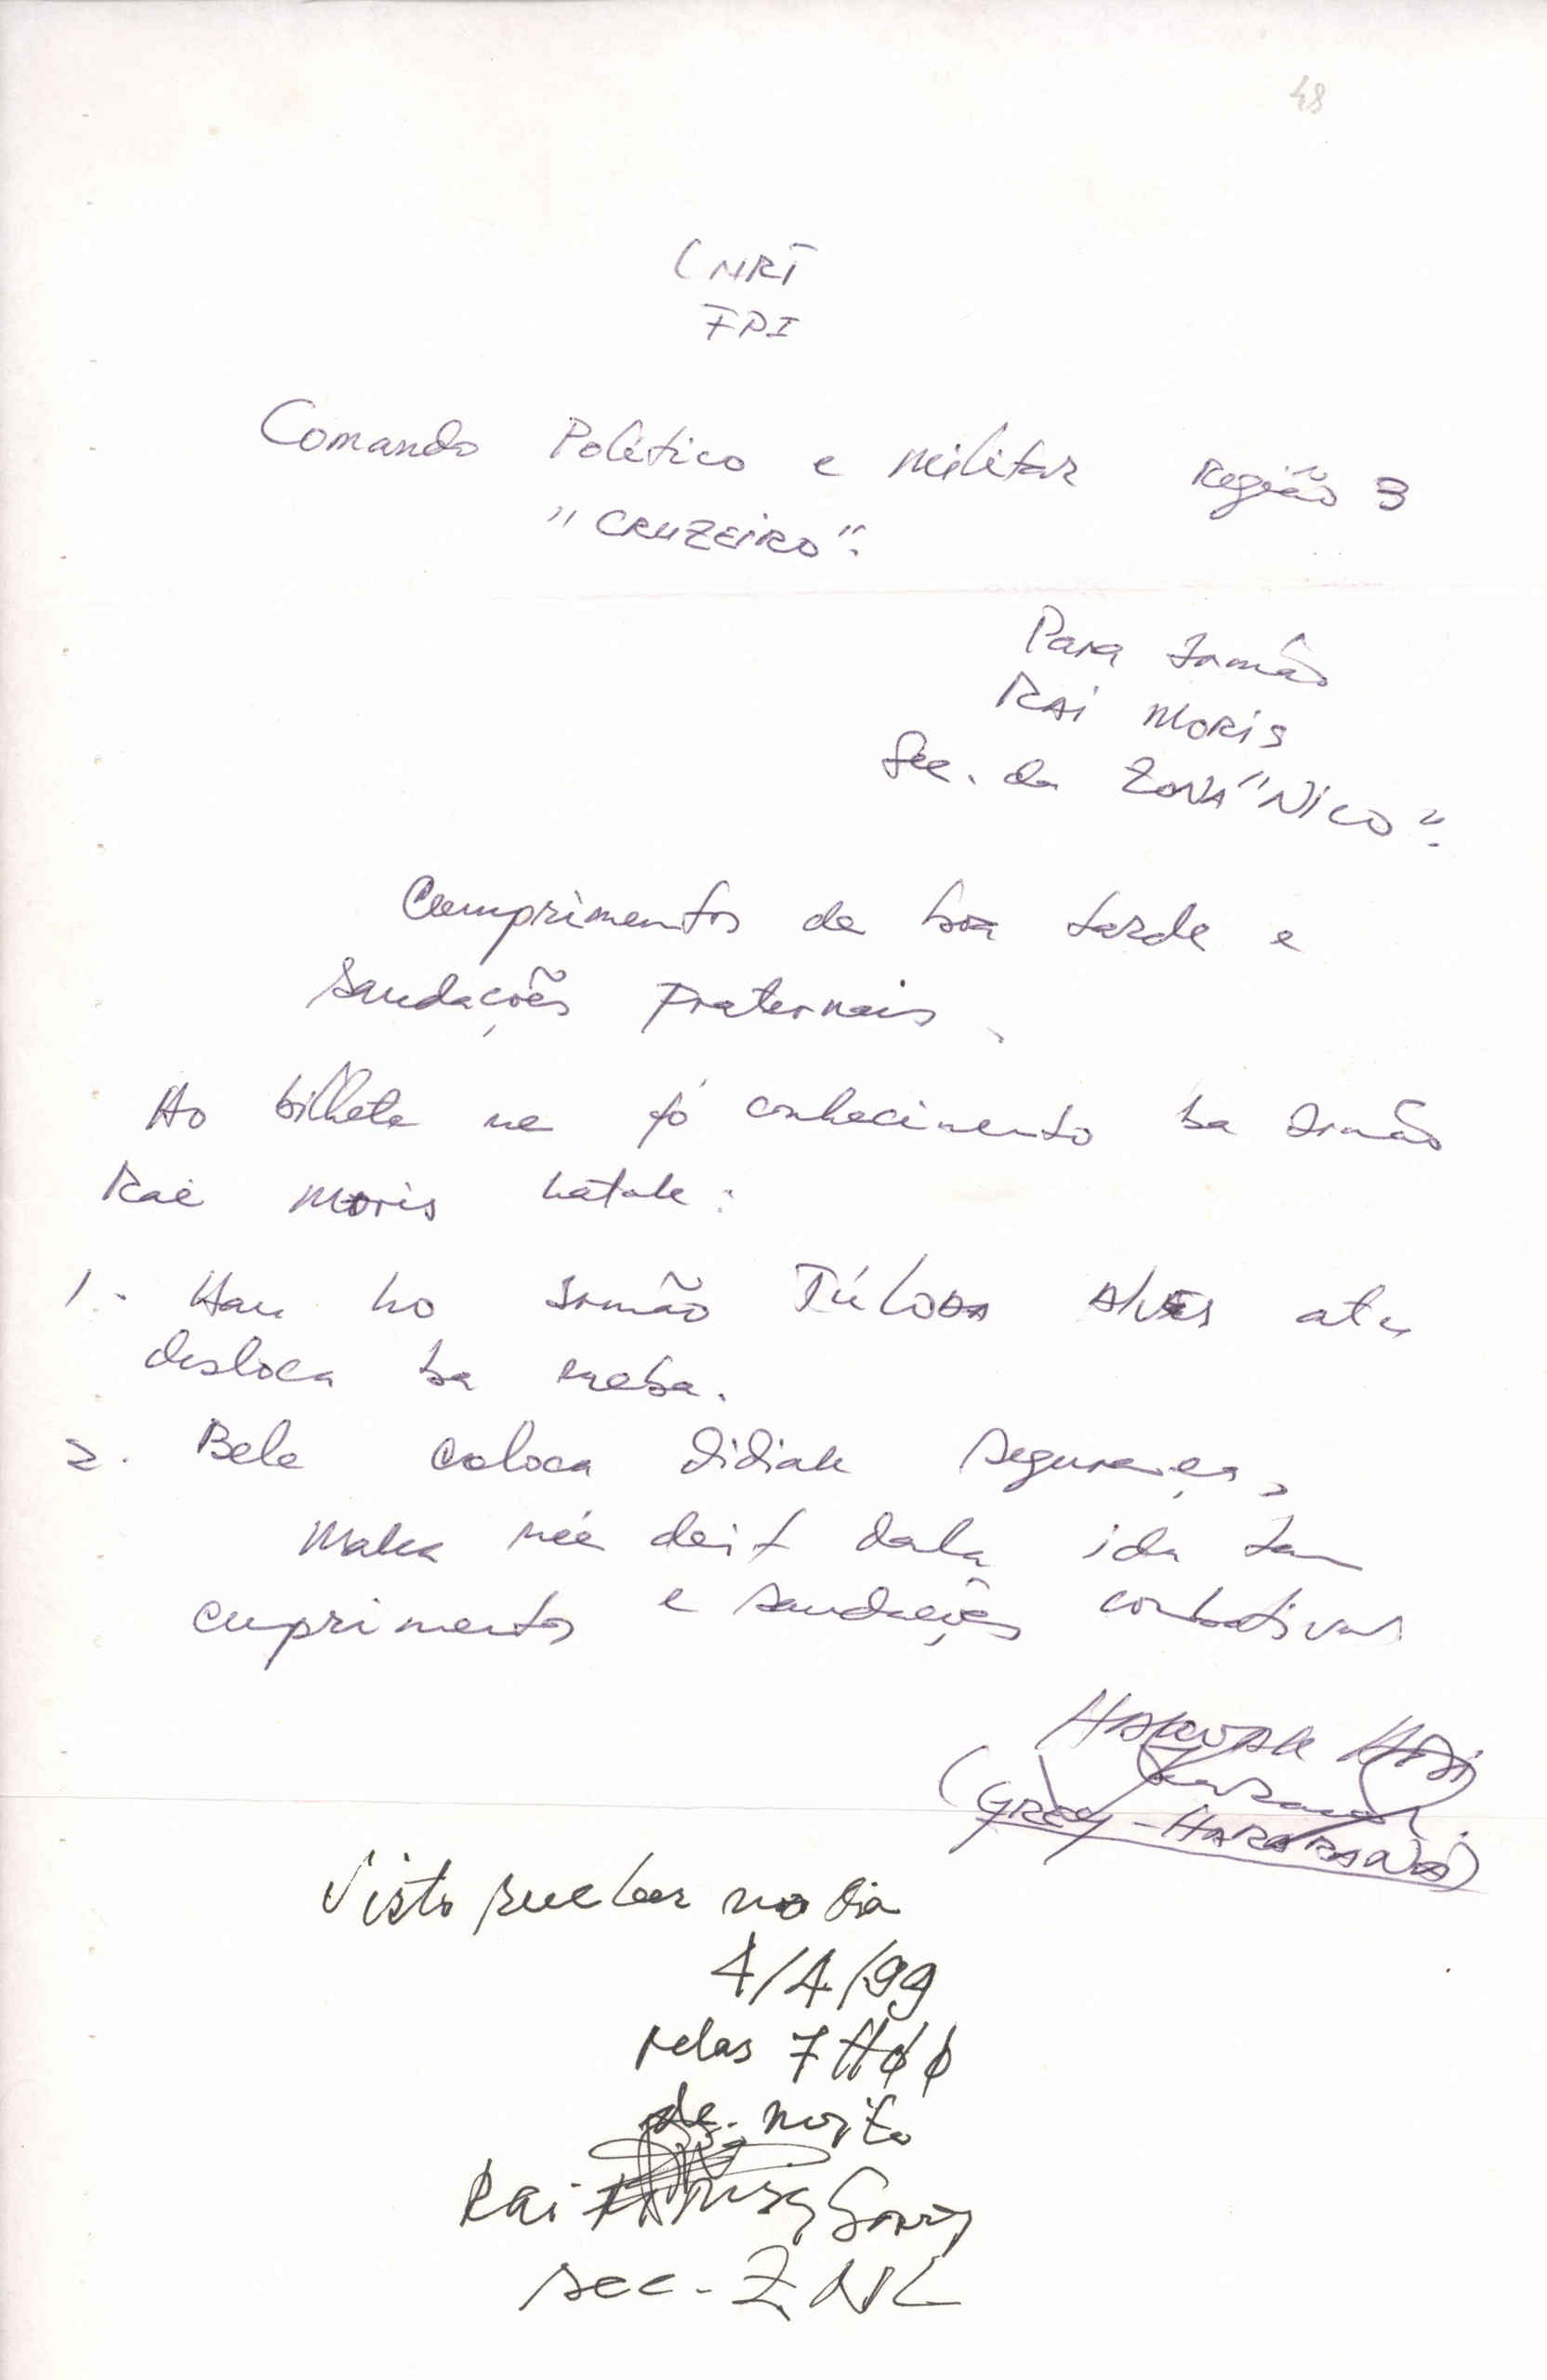 48
CNRT
FPI
Comando Político e Militar Região 3
"CRUZEIRO".
Para Irmão
RAi MORiS
Sec. da ZONA "NiCO".
Cumprimentos de boa tarde e
Saudações Fraternais.
Ho bilhete ne fó conhecimento ba Irmão
Rai Moris hatak:
1. Hau ho Irmão TÚLODA Alves atu
desloca ba
2. Bele coloca didiak segurança,
Maka née deit dala ida tan
cuprimentos e saudações combativas
HAKWAK
(GREY-HARARANA)
Visto receber no dia
4/4/99
pelas 7H00
de noite
Rai
sec-ZNL